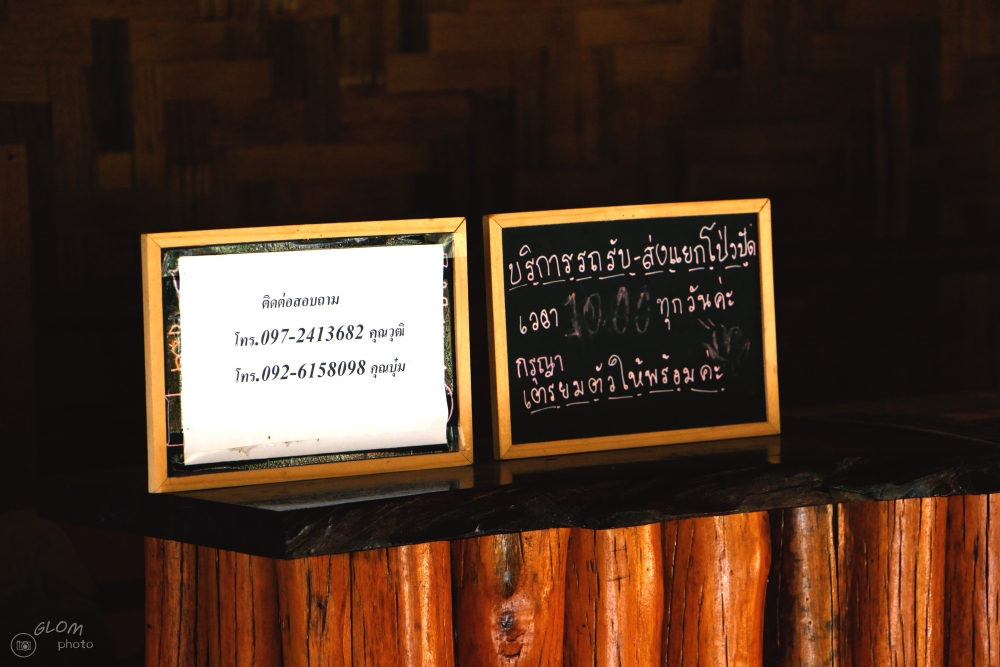 ติดต่อสอบถาม
โทร.097-2413682 คุณวุฒิ
โทร.092-6158098 คุณบุ๋ม
บริการรถรับ-ส่งแยกโป่งปัด
เวลา 10.00 ทุกวันค่ะ
กรุญา
เตรียมตัวให้พร้อมค่ะ
GLOM
photo